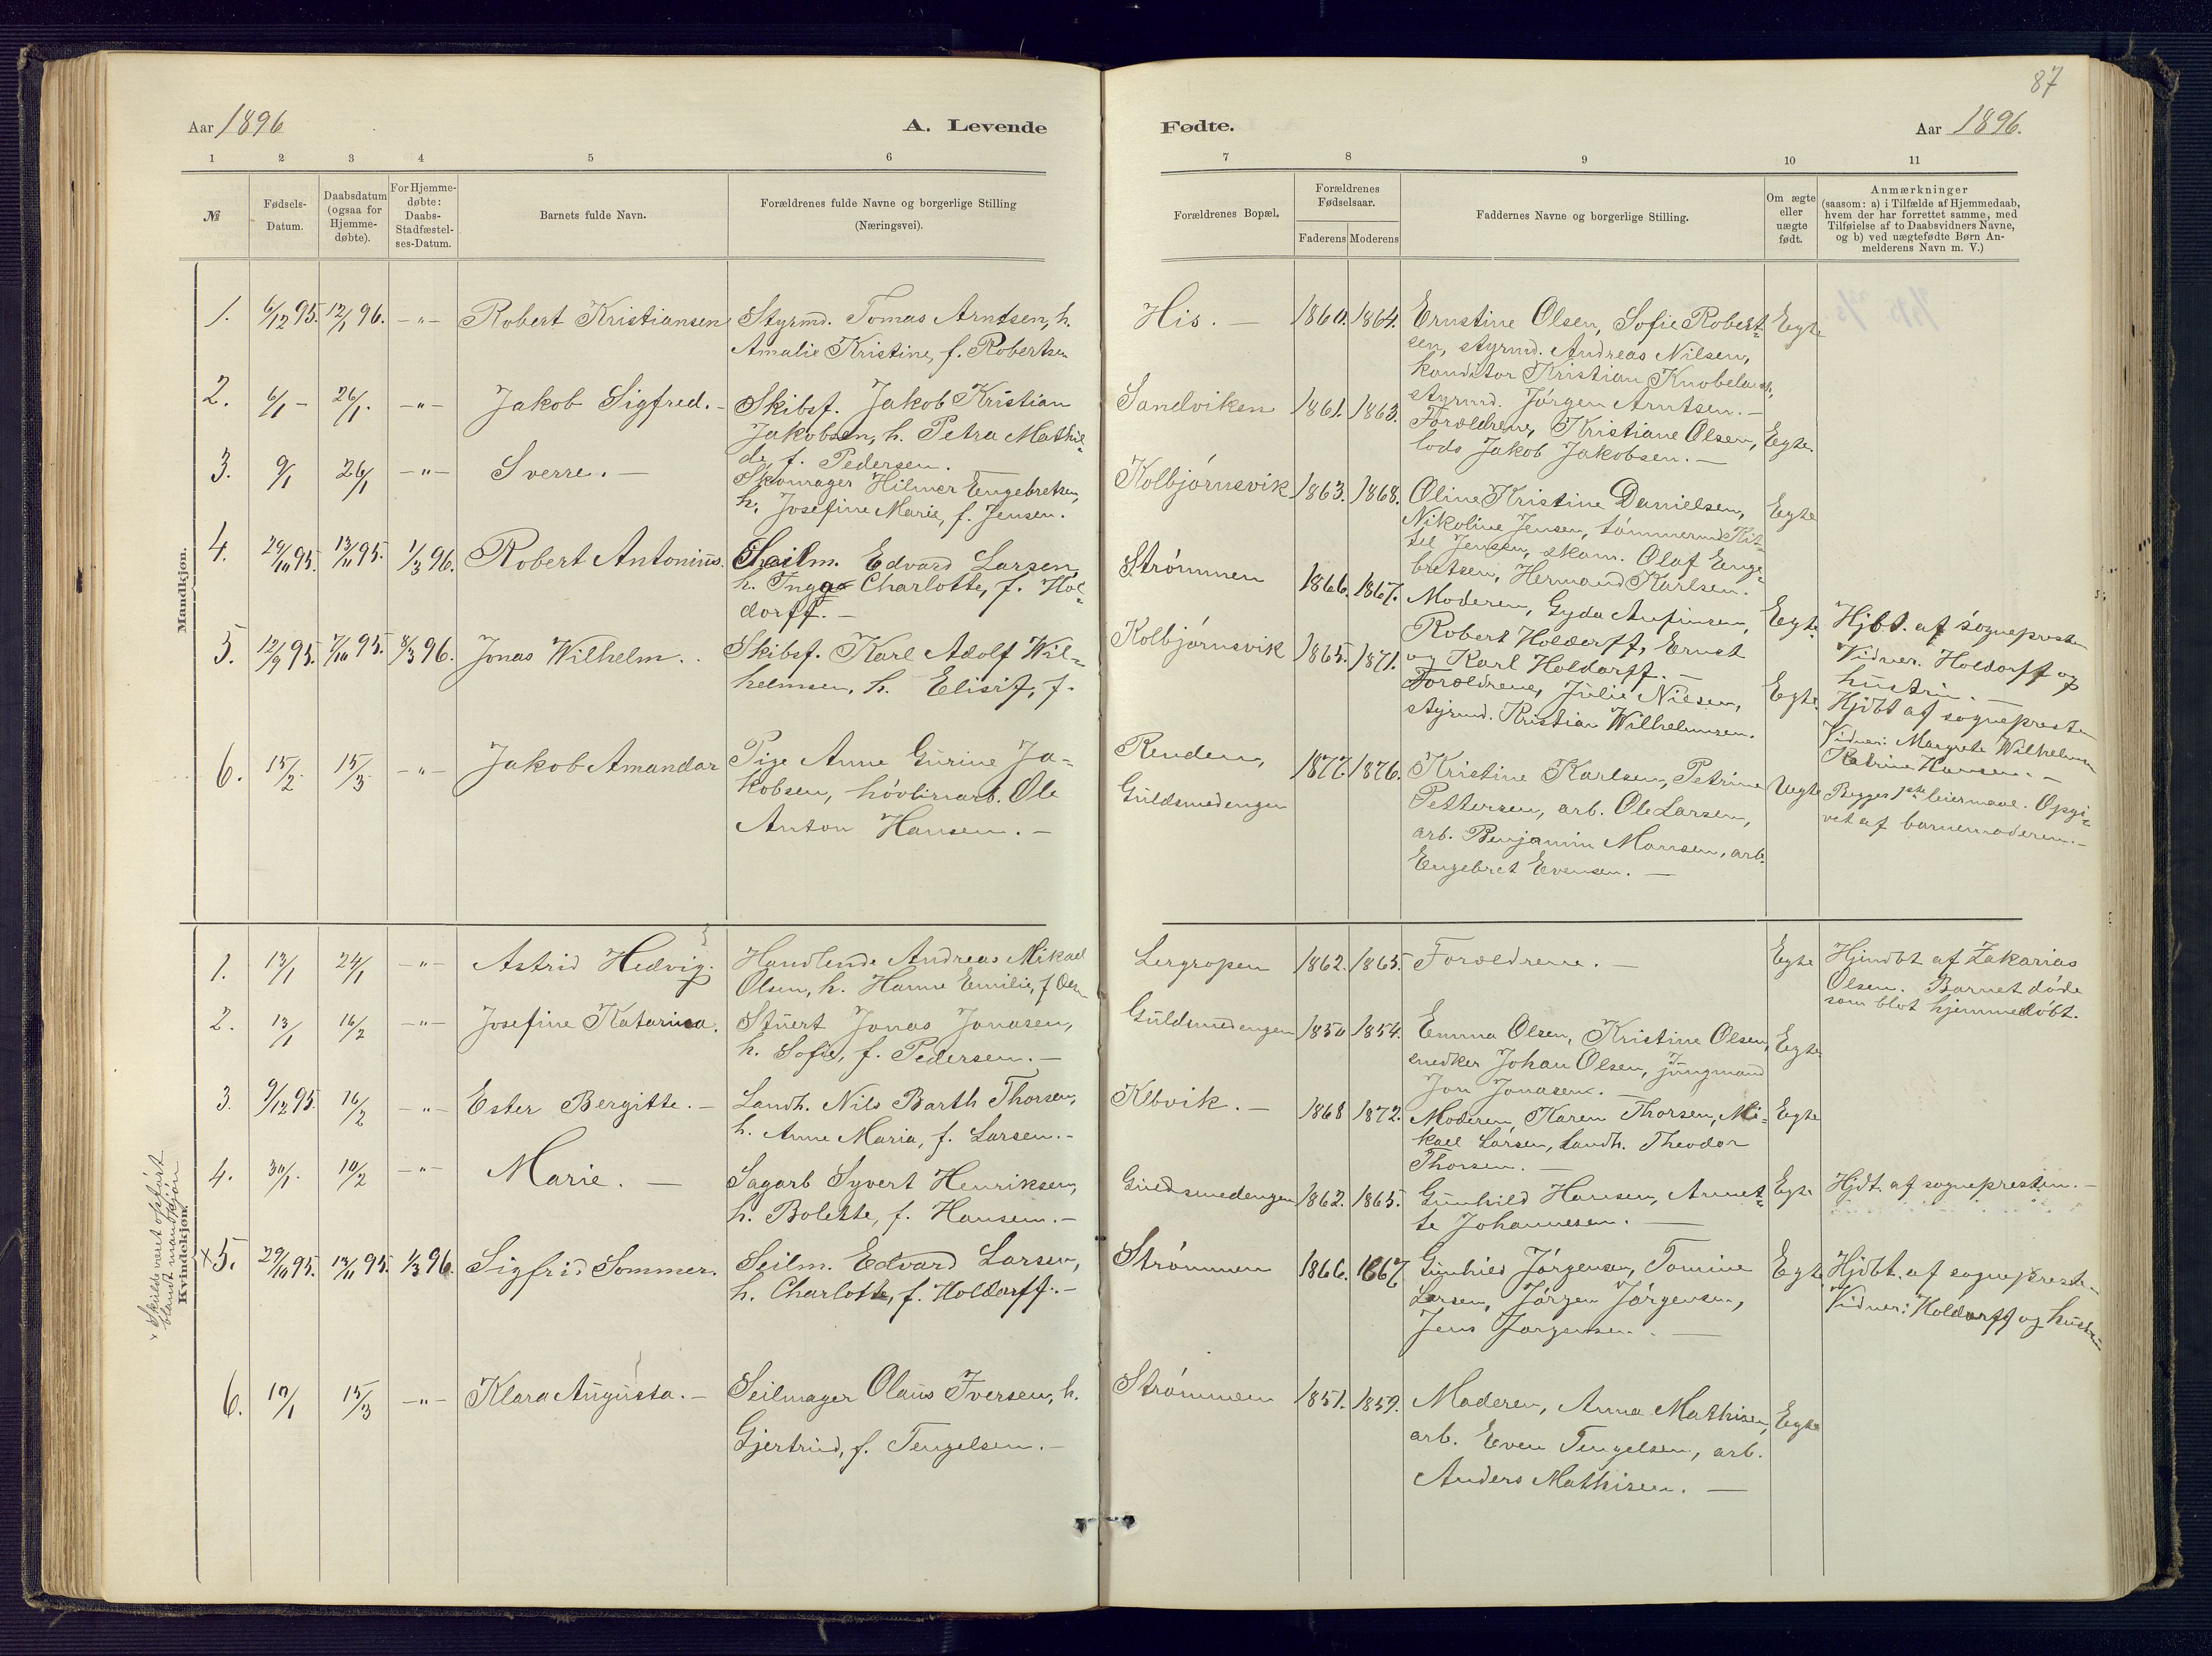 87
Aar 1896 A. Levende Fødte. Aar 1896.
1 2 3 4 5 6 7 8 9 10 11
№
Fødsels-
Datum.
Daabsdatum
(ogsaa for
Hjemme-
døbte).
For Hjemme-
døbte:
Daabs-
Stadfæstel-
ses-Datum.
Barnets fulde Navn.
Forældrenes fulde Navne og borgerlige Stilling
(Næringsvei).
Forældrenes Bopæl.
Forældrenes
Fødselsaar.
Faderens Moderens
Faddernes Navne og borgerlige Stilling.
Om ægte
eller
uægte
født.
Anmærkninger
(saasom: a) i Tilfælde af Hjemmedaab,
hvem der har forrettet samme, med
Tilføielse af to Daabsvidners Navne,
og b) ved uægtefødte Børn An-
melderens Navn m. V.)
Mandkjøn.
1. 6/12 95. 12/1 96. -"- Robert Kristiansen
Styrmd. Tomas Arntsen, h.
Amalie Kristine, f. Robertsen
His. - 1860. 1864.
Ernstine Olsen, Sofie Robert=
sen, styrmd. Andreas Nilsen,
konditor Kristian Knobelauch,
styrmd. Jørgen Arntsen. -
Egte
2. 6/1 - 26/1. -"- Jakob Sigfred. -
Skibsf. Jakob Kristian
Jakobsen, h. Petra Mathil=
de f. Pedersen.
Sandviken 1861. 1863.
Forældrene, Kristiane Olsen,
lods Jakob Jakobsen. -
Egte.
3. 9/1 26/1 -"- Sverre. -
Skomager Hilmer Engebretsen,
h. Josefine Marie, f. Jensen.
Kolbjørnsvik 1863. 1868.
Oline Kristine Danielsen,
Nikoline Jensen, tømmermd Kit=
til Jensen, skom. Olaf Enge=
bretsen, Hermand Karlsen.
Egte
4. 29/10 95. 13/11 95. 1/3 96. Robert Antonius.
Seilm. Edvard Larsen,
h. Inga Charlotte, f. Hol=
dorff. -
Strømmen 1866. 1867.
Moderen, Gyda Anfinsen,
Robert Holdorff, Ernst
og Karl Holdorff. -
Egte
Hjbt. af sogneprsten
Vidner. Holdorff og
hustru. -
5. 12/9 95. 7/10 95. 8/3 96. Jonas Wilhelm.
Skibsf. Karl Adolf Wil=
helmsen, h. Elisif, f.
Kolbjørnsvik 1865. 1871.
Forældrene, Julie Nilsen,
styrmd. Kristian Wilhelmsen.
Egte.
Hjdbt af sogneprsten
Vidner: Margrete Wilhelmsen
Katrine Hansen. -
6. 15/2. 15/3. -"- Jakob Amandar
Pige Anne Gurine Ja=
kobsen, høvleriarb. Ole
Anton Hansen. -
Renden,
Guldsmedengen
1877. 1876.
Kristine Karlsen, Petrine
Pettersen, arb. Ole Larsen,
arb. Benjamin Monsen, arb.
Engebret Evensen. -
Uegte
Begges 1ste leiermaal. Opgi=
vet af barnemoderen. -
Kvindekjøn.
1. 13/1 24/1 -"- Astrid Hedvig.
Handlende Andreas Mikael
Olsen, h. Hanne Emilie, f Olsen
Lergropen 1862. 1865. Forældrene. -
Egte
Hjmdbt af Zakarias
Olsen. Barnet døde
som blot hjemmedøbt.
2. 13/1 16/2 -"- Josefine Katarina.
Stuert Jonas Jonasen,
h. Sofie, f. Pedersen. -
Guldsmedengen 1850 1854.
Emma Olsen, Kristine Olsen,
snedker Johan Olsen, jungmand
Jon Jonasen. -
Egte
3. 9/12 95. 16/2 -"- Ester Bergitte. -
Landh. Nils Barth Thorsen,
h. Anne Maria, f. Larsen. -
Klbvik. - 1868 1872.
Moderen, Karen Thorsen, Mi=
kael Larsen, Landh. Theodor
Thorsen. -
Egte
4. 30/1. 10/2 -"- Marie. -
Sagarb Syvert Henriksen,
h. Bolette, f. Hansen. -
Guldsmedengen 1862. 1865.
Gunhild Hansen, Annet=
te Johannesen. -
Egte
Hjdt. af sogneprestin. -
x skulde været opført
blandt mandkjøn
x5. 29/10 95. 13/11 95. 1/3 96. Sigfrid Sommer.
Seilm. Edvard Larsen,
h. Charlotte, f. Holdorff. -
Strømmen 1866. 1867.
Gunhild Jørgensen, Tomine
Larsen, Jørgen Jørgensen,
Jens Jørgensen. -
Egte
Hjdbt. af sogneprest.
Vidner: Holdorff og hustru
6. 10/1 15/3 -"- Klara Augusta. -
Seilmager Olaus Iversen, h.
Gjertrud, f. Tengelsen. -
Strømmen 1851. 1859.
Moderen, Anna Mathisen,
arb. Even Tengelsen, arb.
Anders Mathisen. -
Egte